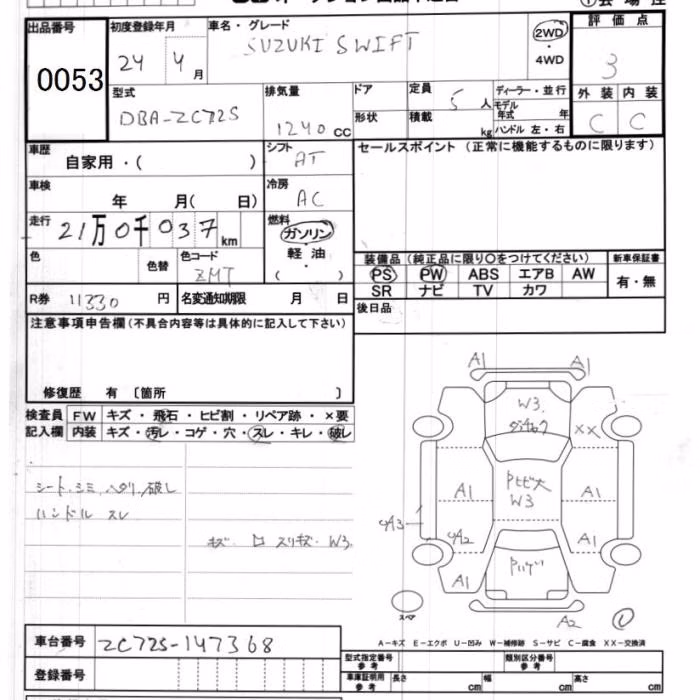 出品番号 初度登録年月 車名・グレード 2WD 評価点
0053 24 4月 SUZUKI SWIFT ・4WD 3
型式 排気量 ドア 定員 ディーラー・並行 外装 内装
DBA-ZC72S 1240 CC 5人 モデル年式 年 C C
形状 積載 kg ハンドル 左・右
車歴 シフト セールスポイント (正常に機能するものに限ります)
自家用・( ) AT
車検 冷房
年 月( 日) AC
走行 燃料
21万0千037km ガソリン
色 色替 色コード 軽油 装備品 (純正品に限り○をつけてください) 新車保証書
ZMT ( ) PS PW ABS エアB AW 有・無
R券 11330円 名変通知期限 月 日 SR ナビ TV カワ
注意事項申告欄(不具合内容等は具体的に記入して下さい) 後日品
修復歴 有 〔箇所 〕
検査員 FW キズ・飛石・ヒビ割・リペア跡・×要
記入欄 内装 キズ・汚レ・コゲ・穴・スレ・キレ・破レ
シート・シミ、ヘタリ/破レ
ハンドル スレ
キズ ロ スリキズ W3
A1 A1 A1
W3
XX
Pヒビ大
A1 W3 A1
A3 A2 A1
A1
スペア A2
A-キズ E-エクボ U-凹み W-補修跡 S-サビ C-腐食 XX-交換済
車台番号 ZC72S-147368
型式指定番号 参考 類別区分番号 参考
登録番号 車庫証明用 参考 長さ cm 幅 cm 高さ cm